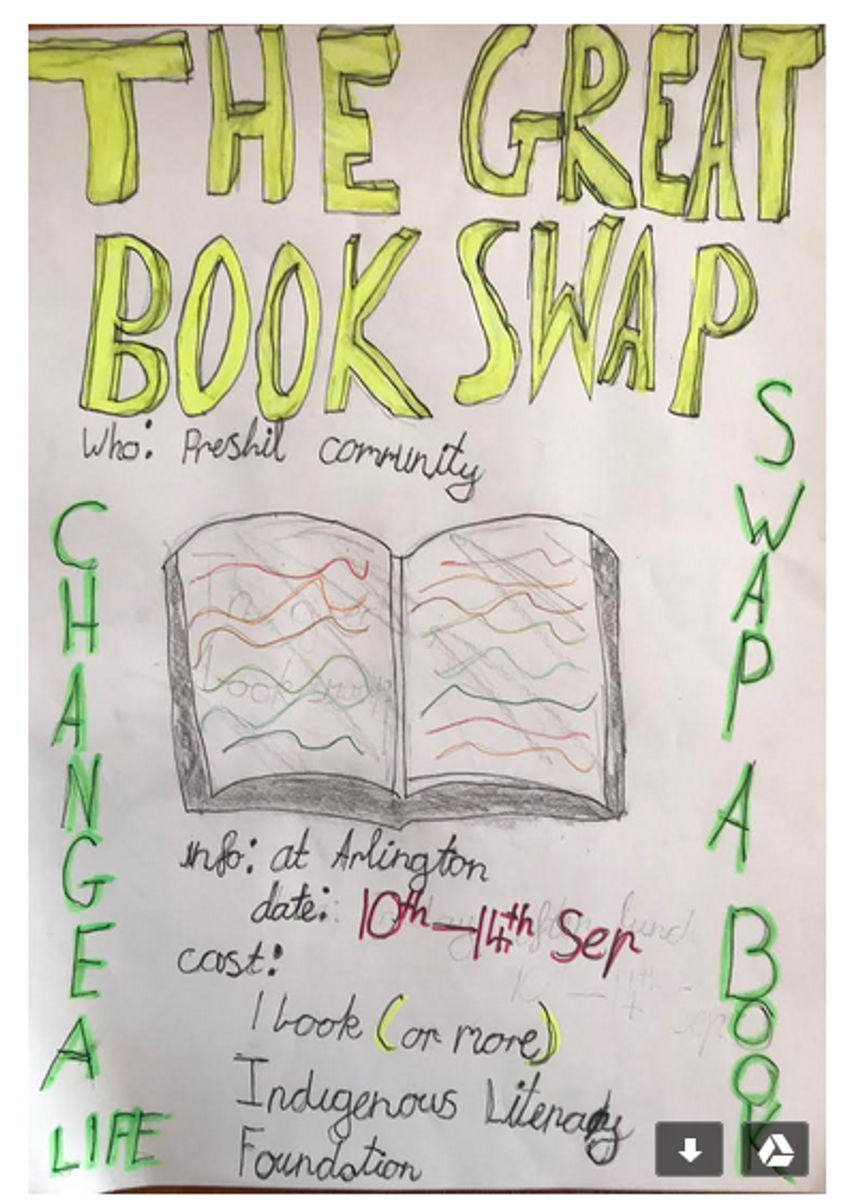 THE GREAT
BOOK SWAP
Who: Preshil community
CHANGE A LIFE
SWAP A BOOK
info: at Arlington
date: 10th - 14th Sep
cost:
1 book (or more)
Indigenous Literacy
Foundation